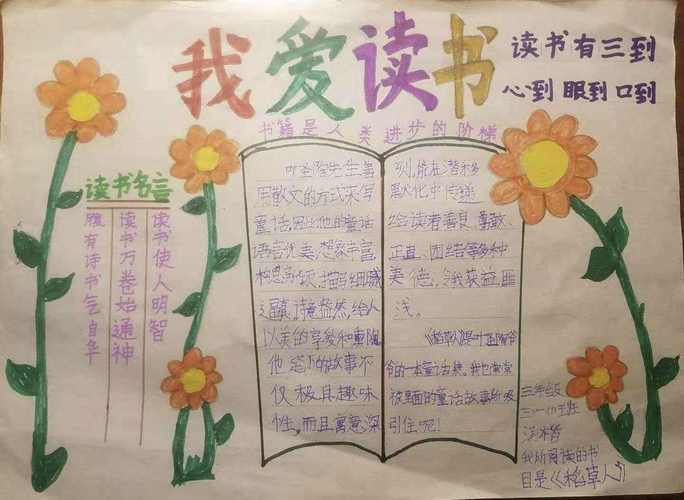 我爱读书
读书有三到
心到 眼到 口到
书籍是人类进步的阶梯
读书名言
读书使人明智
读书万卷始通神
腹有诗书气自华
叶圣陶先生善
用散文的方式来写
童话,因此他的童话
语言优美,想象丰富
构思巧妙,描写细腻
逼真,诗意盎然,给人
以美的享受和熏陶
他笔下的故事不
仅极具趣味
性,而且寓意深
刻,能在潜移
默化中传递
给读者善良、勇敢、
正直、团结等多种
美德,令我获益匪
浅。
《稻草人》是叶圣陶爷
爷的一本童话集。我也常常
被里面的童话故事所吸
引住呢!
三年级
三·(1)班
我所阅读的书
目是《稻草人》